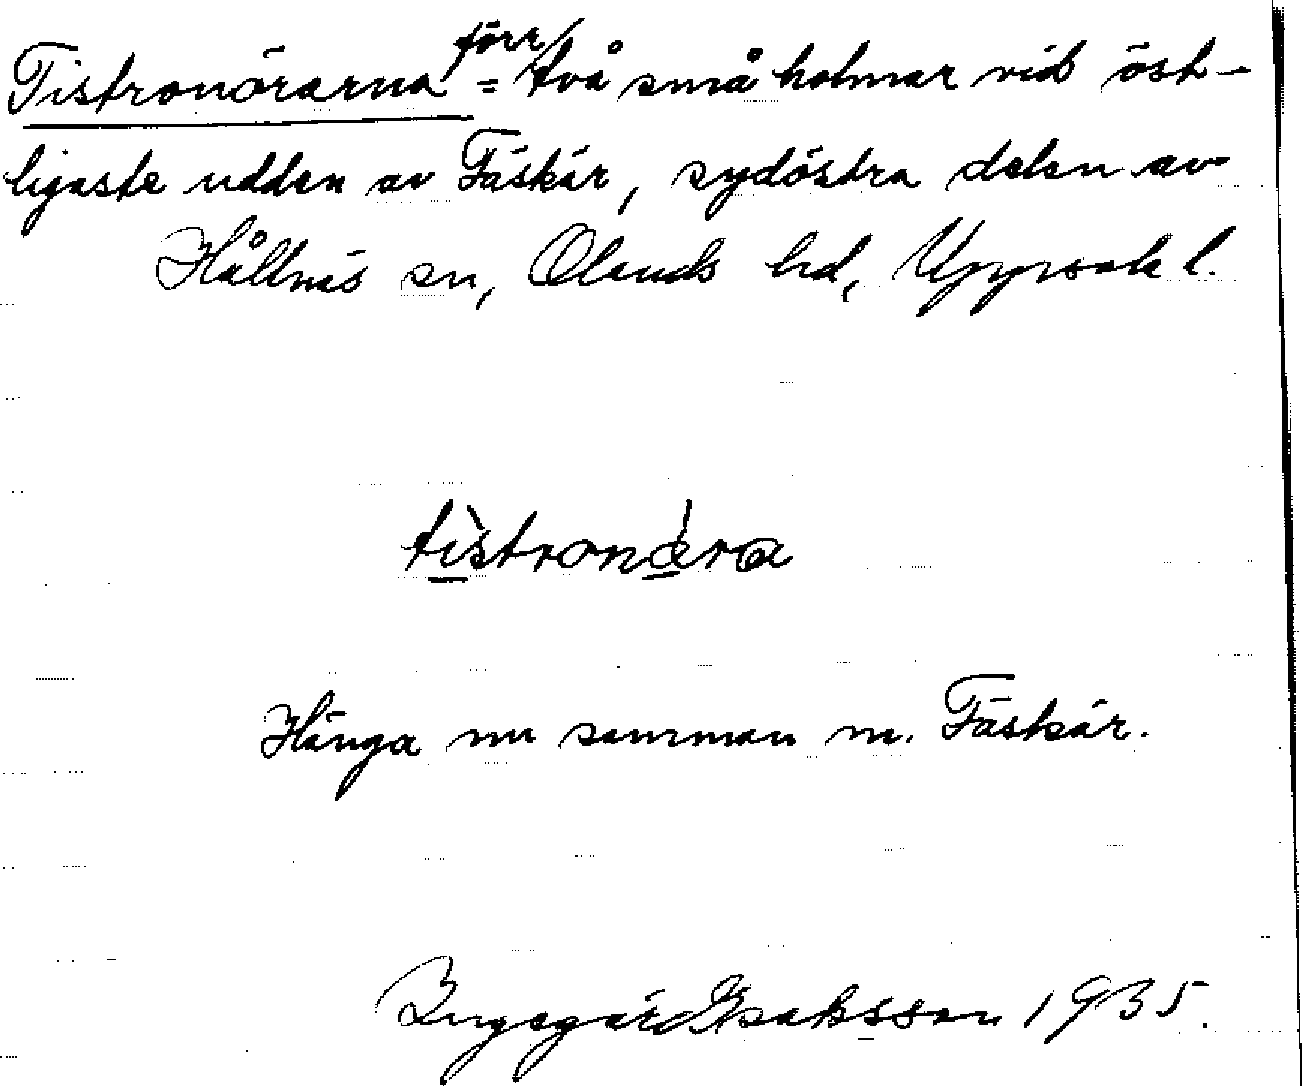 Tistronörarna = förr två små holmar vid öst-
ligaste udden av Fäskär, sydöstra delen av
Hållnäs sn, Olands hd, Uppsala l.
tistronöra
Hänga nu samman m. Fäskär.
Ingegärd Isaksson 1935.